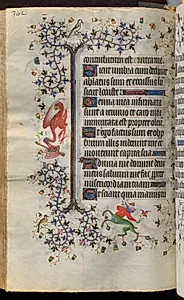 conturbatum est intra me
Sicut umbra cum declinat
ablatus sum et excussus sum
sicut locuste
Genua mea infirmata
sunt a ieiunio et caro mea
immutata est propter oleu
Et ego factus sum et obp
brium illis viderunt me et
moverunt capita sua
Adiuva me domine deus
meus salvum me fac secun
misericordiam tuam
Et sciant quia manus